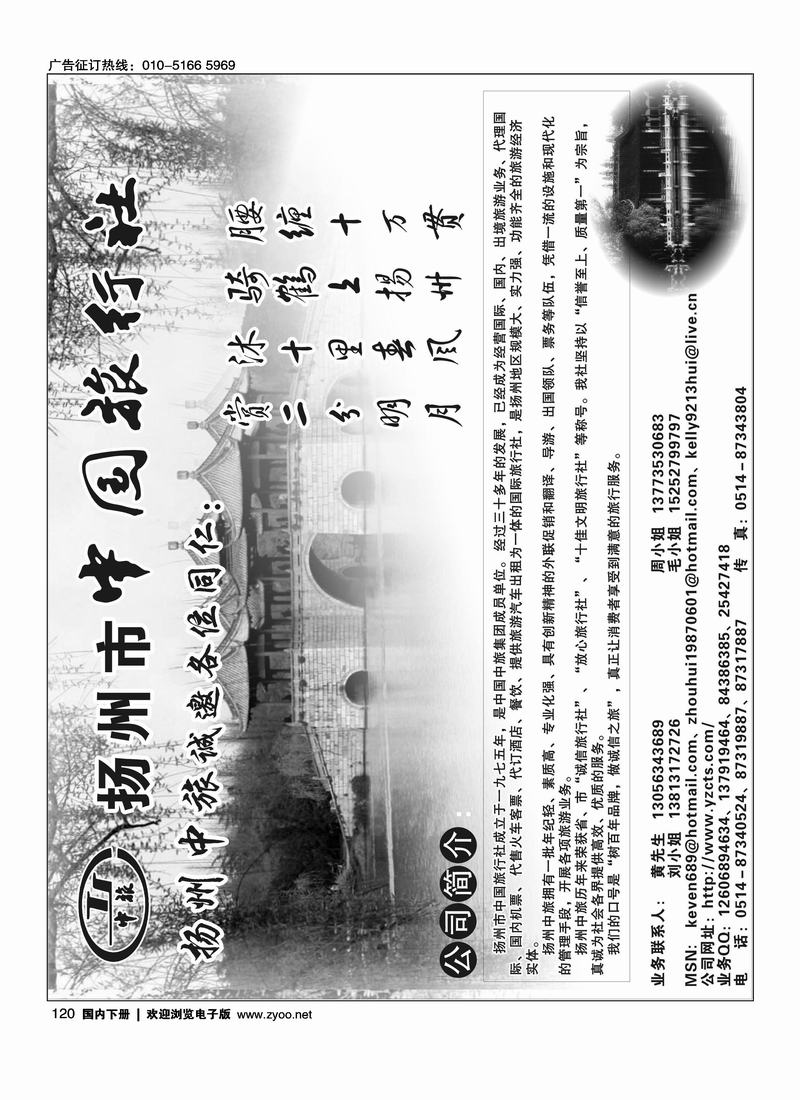 广告征订热线：010-5166 5969
中旅
扬州市中国旅行社
扬州中旅诚邀各位同仁：
腰缠十万贯
骑鹤上扬州
沐十里春风
赏二分明月
公司简介：
扬州市中国旅行社成立于一九七五年，是中国中旅集团成员单位。经过三十多年的发展，已经成为经营国际、国内、出境旅游业务、代理国
际、国内机票、代售火车客票、代订酒店、餐饮、提供旅游汽车出租为一体的国际旅行社，是扬州地区规模大、实力强、功能齐全的旅游经济
实体。
扬州中旅拥有一批年纪轻、素质高、专业化强、具有创新精神的外联促销和翻译、导游、出国领队、票务等队伍，凭借一流的设施和现代化
的管理手段，开展各项旅游业务。
扬州中旅历年来荣获省、市“诚信旅行社”、“放心旅行社”、“十佳文明旅行社”等称号。我社坚持以“信誉至上、质量第一”为宗旨，
真诚为社会各界提供高效、优质的服务。
我们的口号是“树百年品牌，做诚信之旅”，真正让消费者享受到满意的旅行服务。
业务联系人： 黄先生 13056343689 周小姐 13773530683
刘小姐 13813172726 毛小姐 15252799797
MSN: keven689@hotmail.com、zhouhui19870601@hotmail.com、kelly9213hui@live.cn
公司网址：http://www.yzcts.com/
业务QQ：12606894634、137919464、84386385、25427418
电 话：0514-87340524、87319887、87317887 传 真：0514-87343804
120 国内下册 | 欢迎浏览电子版 www.zyoo.net